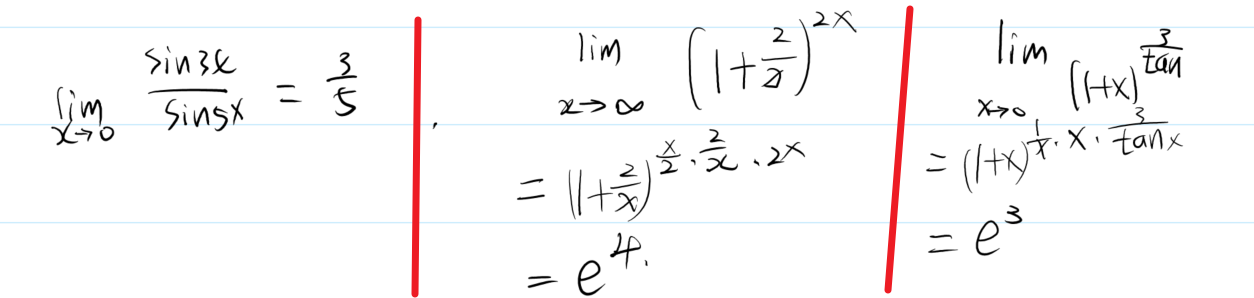 lim_{x→0} sin3x/sin5x = 3/5 .
lim_{x→∞} (1+2/x)^{2x}
= (1+2/x)^{x/2 · 2/x · 2x}
= e^{4}.
lim_{x→0} (1+x)^{3/tan}
= (1+x)^{1/x · x · 3/tanx}
= e^{3}